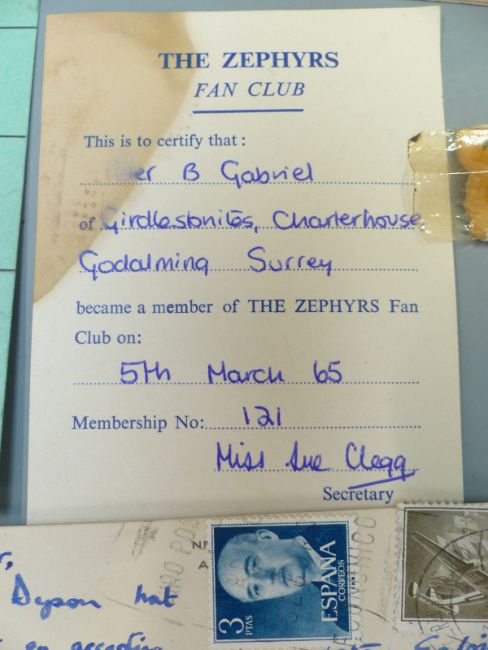 THE ZEPHYRS
FAN CLUB
This is to certify that:
er B Gabriel
of Girdlestonites, Charterhouse
Godalming Surrey
became a member of THE ZEPHYRS Fan
Club on:
5th March 65
Membership No: 121
Miss Sue Clegg
Secretary
Dyson hat
3 PTAS
ESPAÑA
CORREOS